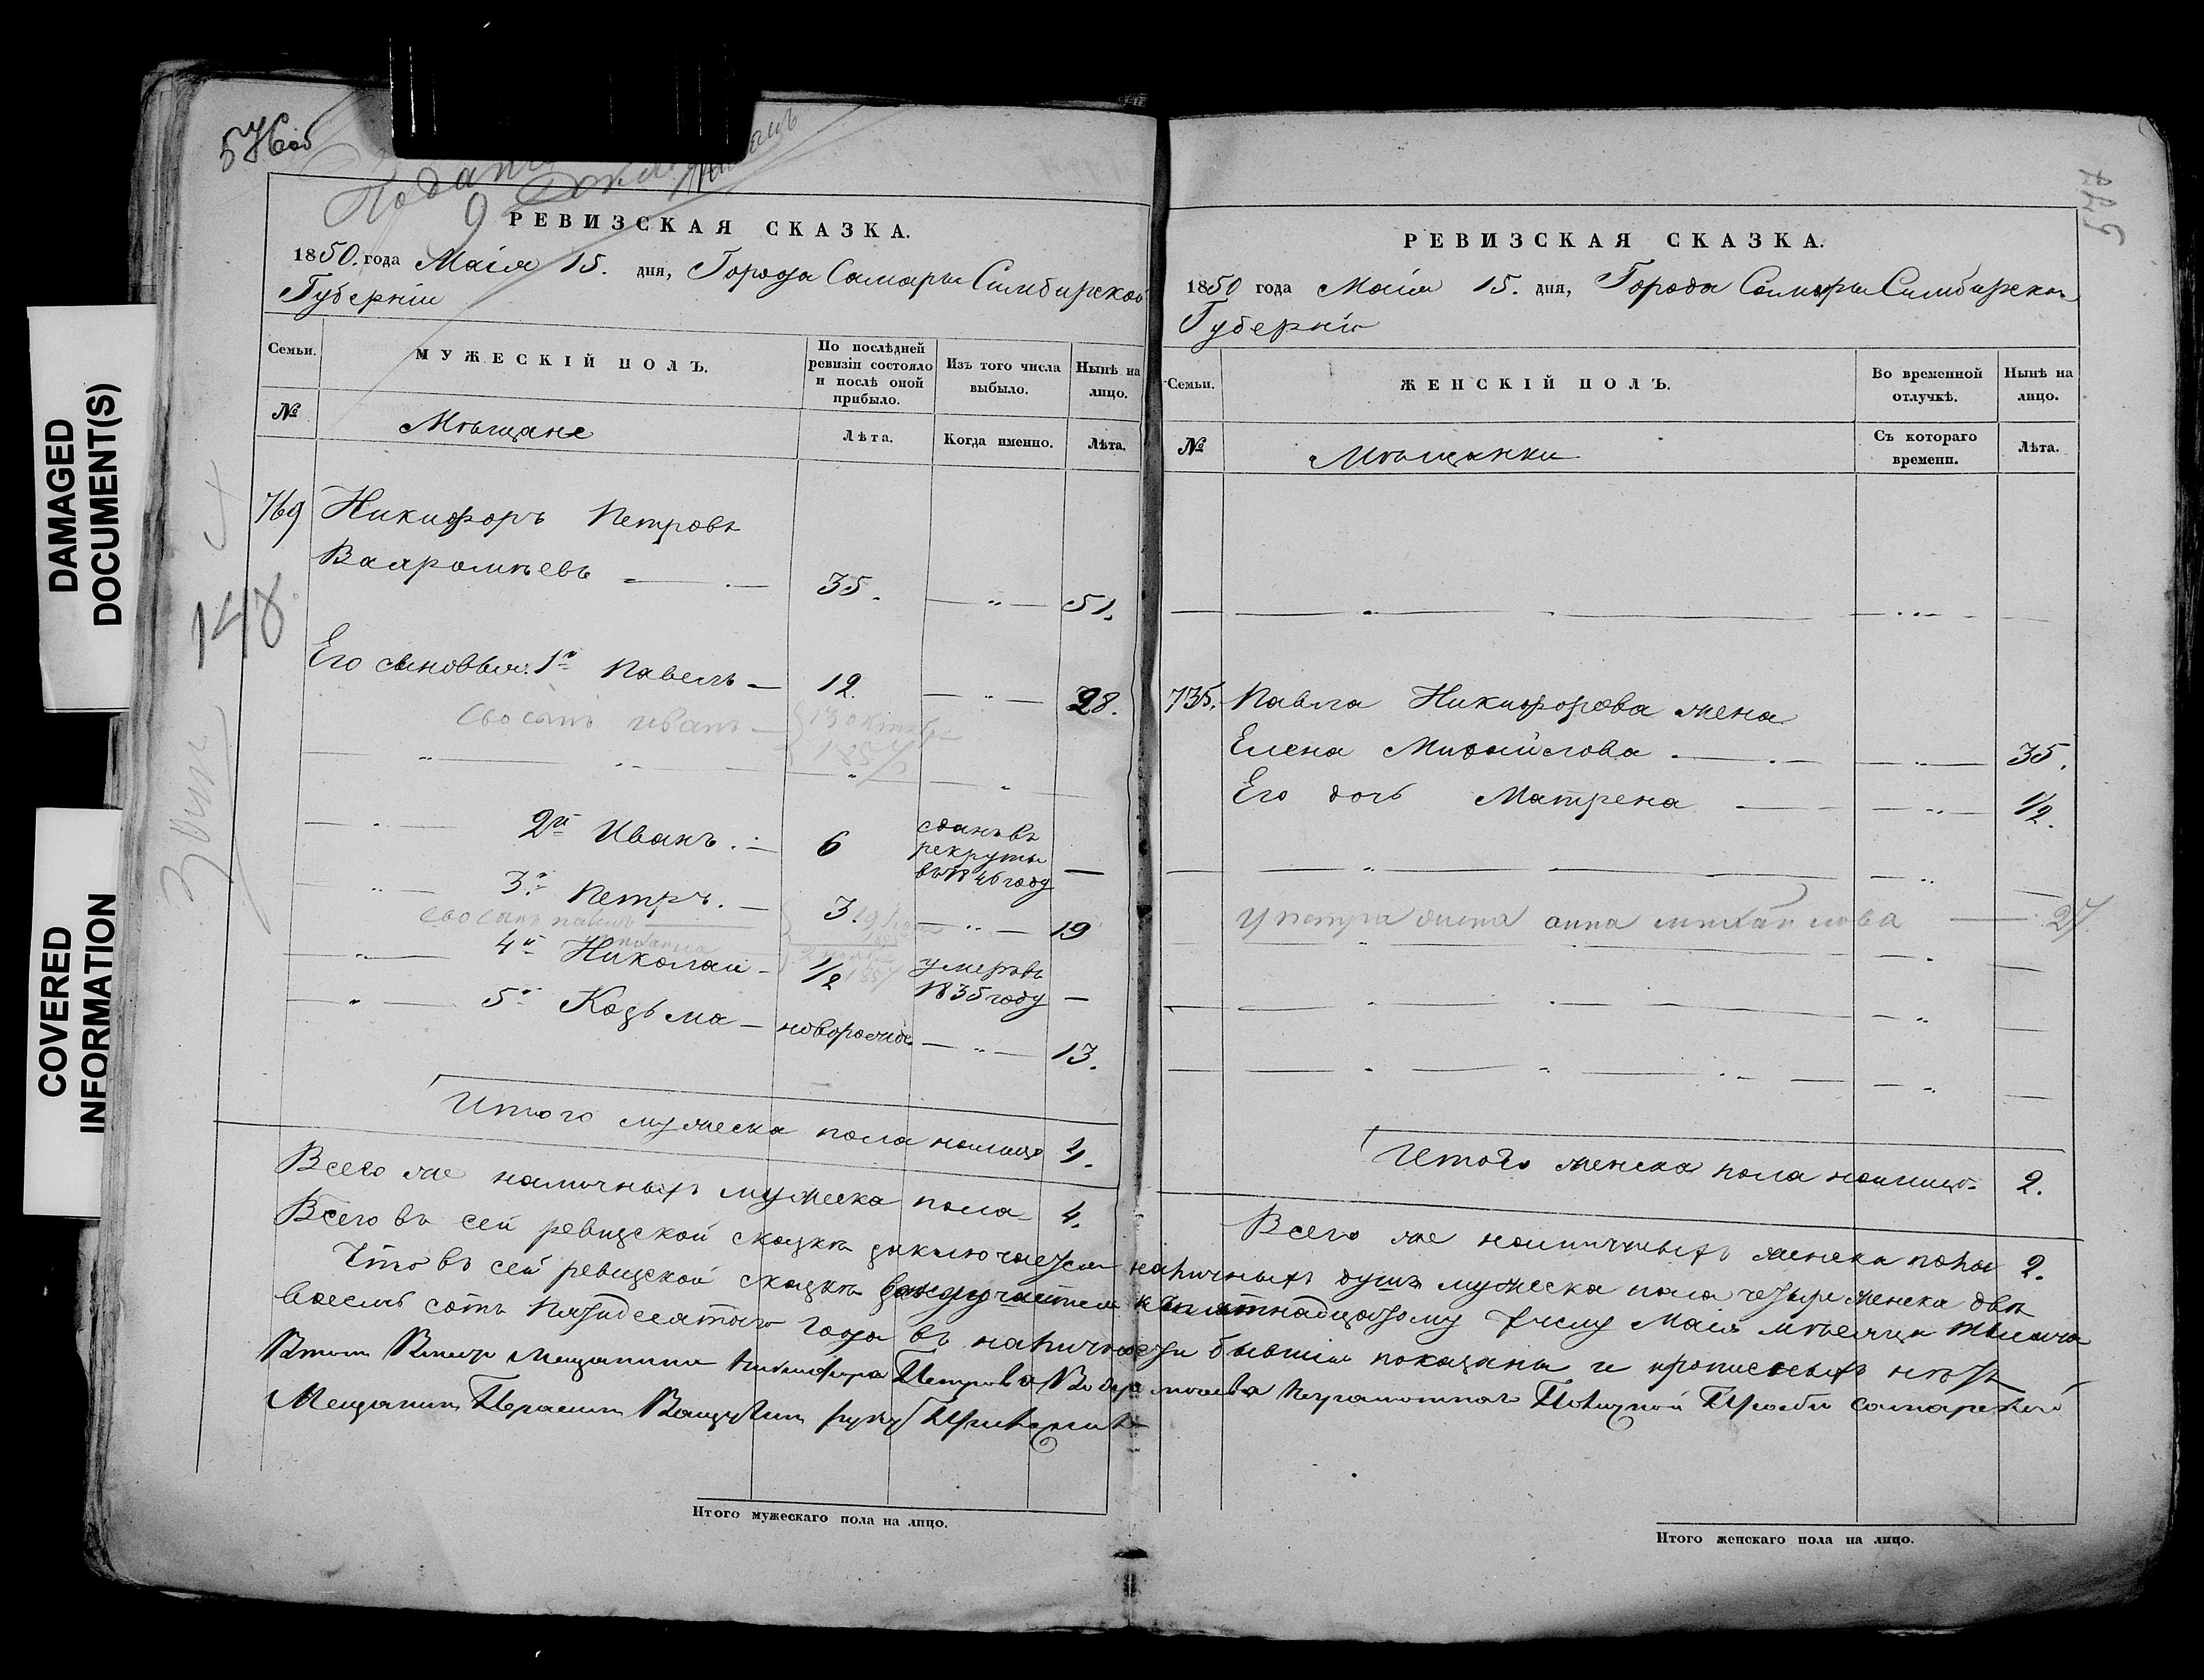 DAMAGED
DOCUMENT(S)
COVERED
INFORMATION
576об
577
9
РЕВИЗСКАЯ СКАЗКА.
1850. года Маія 15. дня, Города Самары Симбирской
Губерніи
Семьи.
МУЖЕСКІЙ ПОЛЪ.
По послѣдней
ревизіи состояло
и послѣ оной
прибыло.
Изъ того числа
выбыло.
Нынѣ на
лицо.
№
Мѣщане
Лѣта.
Когда именно.
Лѣта.
148
769 Никифоръ Петровъ
35. — „ — 51.
Его сыновья: 1й Павелъ — 12. — „ — 28.
Его сынъ Иванъ — 13 октября
1857
2й Иванъ. — 6 сданъ въ
рекруты
въ 1846 году —
3й Петръ. — 3. — „ — 19
Его сынъ Павелъ
4й Николай — 1/2 умеръ въ
1835 году —
5й Козьма — новорожд. — „ — 13.
Итого мужеска пола налицо 4.
Всего же наличныхъ мужеска пола 4.
РЕВИЗСКАЯ СКАЗКА.
1850 года Маія 15. дня, Города Самары Симбирской
Губерніи
Семьи.
ЖЕНСКІЙ ПОЛЪ.
Во временной
отлучкѣ.
Нынѣ на
лицо.
№
Мѣщанки
Съ котораго
времени.
Лѣта.
735. Павла Никифорова жена
Елена Михайлова — — „ — 35.
Его дочь Матрена — — „ — 1/2.
у Петра жена Анна Михайлова — 27
Итого женска пола налицо. 2.
Всего же наличныхъ женска пола 2.
Всего въ сей ревизской сказкѣ заключается наличныхъ душъ мужеска пола четыре женска двѣ
Что въ сей ревизской сказкѣ всѣ къ пятнадцатому числу Маія мѣсяца тысяча
восемь сотъ пятидесятаго года въ наличности бывшіе показаны и прописныхъ нѣтъ
Въ томъ Вместо Мещанина Никифора Петрова неграмотнаго Поличной Прозбе Самарской
Мещанин Герасим руку Приложилъ
Итого мужескаго пола на лицо.
Итого женскаго пола на лицо.